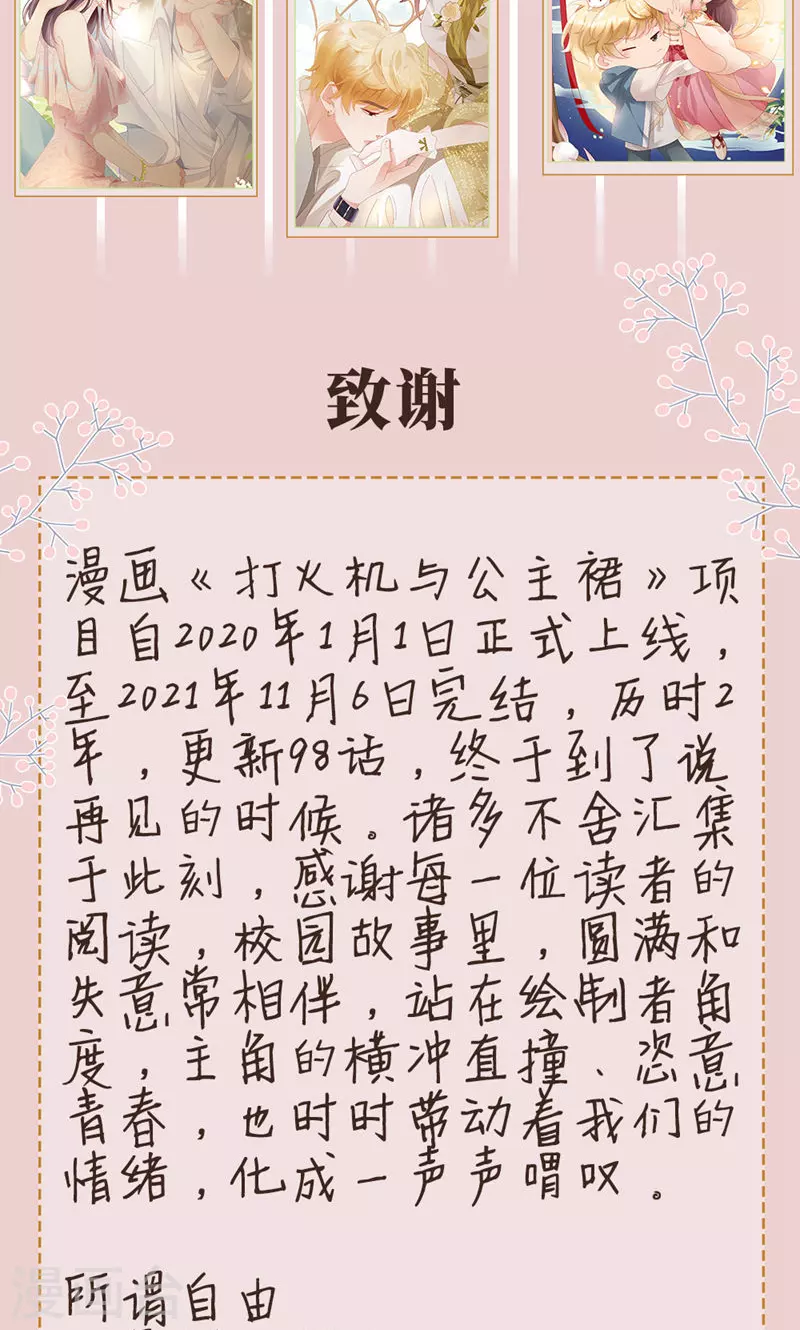 致谢
漫画《打火机与公主裙》项
目自2020年1月1日正式上线，
至2021年11月6日完结，历时2
年，更新98话，终于到了说
再见的时候。诸多不舍汇集
于此刻，感谢每一位读者的
阅读，校园故事里，圆满和
失意常相伴，站在绘制者角
度，主角的横冲直撞、恣意
青春，也时时带动着我们的
情绪，化成一声声喟叹。
所谓自由
漫画台